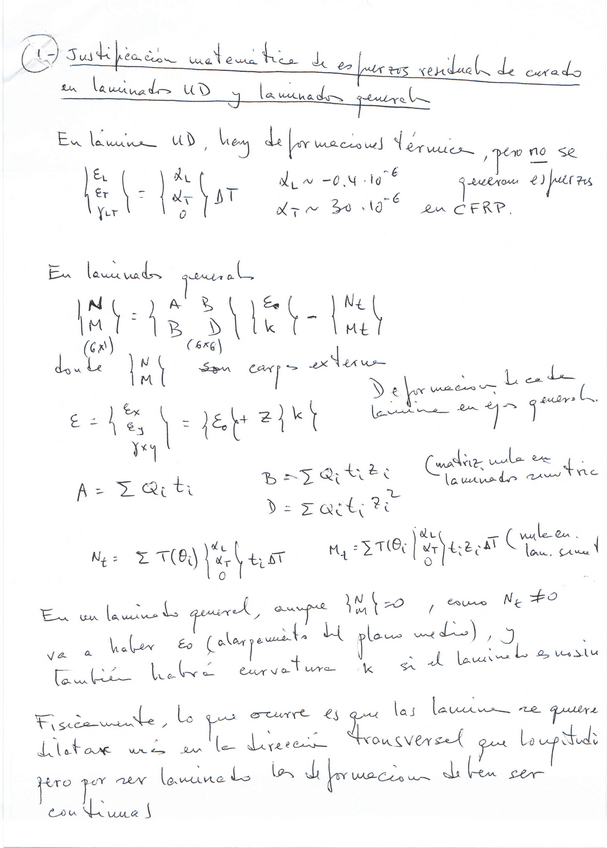 1.- Justificación matemática de esfuerzos residuales de curado
en laminados UD y laminados generales
En lámina UD, hay deformaciones térmica, pero no se
generan esfuerzos
en CFRP.
{εL εT γLT} = {αL αT 0} ΔT   αL ~ -0.4·10^-6
αT ~ 30·10^-6
En laminados generales
{N M} = {A B B D} {ε0 k} - {Nt Mt}
(6x1) (6x6)
donde {N M} son cargas externas
ε = {εx εy γxy} = {ε0} + z{k}
Deformacion de cada
lámina en ejes generales.
A = Σ Qi ti   B = Σ Qi ti zi   (matriz nula en
laminados simetric
D = Σ Qi ti zi²
Nt = Σ T(θi) {αL αT 0} ti ΔT   Mt = Σ T(θi) {αL αT 0} ti zi ΔT (nula en
lam. simet
En un laminado general, aunque {N M} = 0, como Nt ≠ 0
va a haber ε0 (alargamiento del plano medio), y
también habrá curvatura k si el laminado es nosim
Físicamente, lo que ocurre es que las lámina se quiere
dilatar más en la dirección transversal que longitudi
pero por ser laminado las deformacion deben ser
continuas